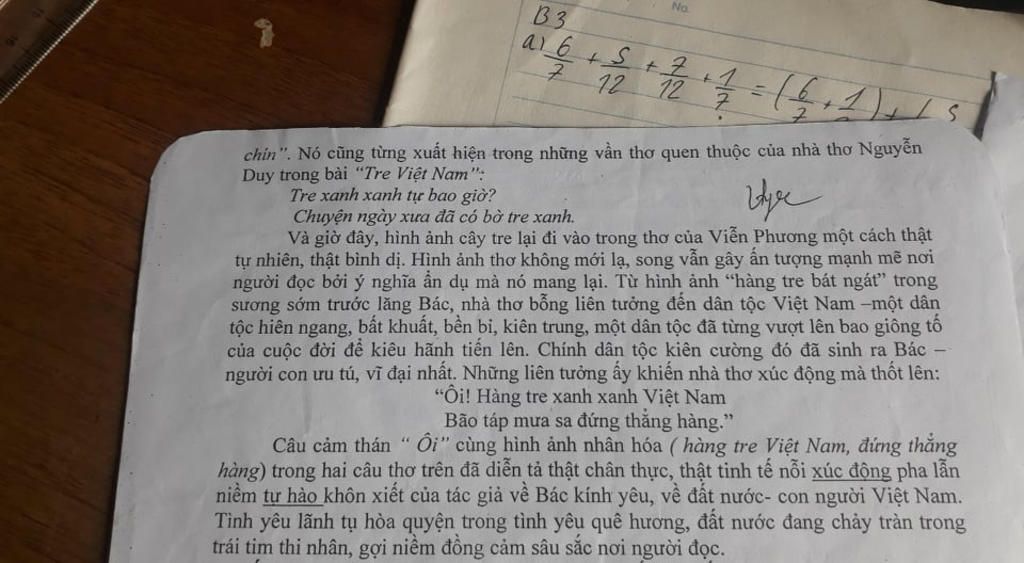 No.
B3
a) 6/7 + 5/12 + 7/12 + 1/7 = (6/7 + 1
chín". Nó cũng từng xuất hiện trong những vần thơ quen thuộc của nhà thơ Nguyễn
Duy trong bài "Tre Việt Nam":
Tre xanh xanh tự bao giờ?
Chuyện ngày xưa đã có bờ tre xanh.
Và giờ đây, hình ảnh cây tre lại đi vào trong thơ của Viễn Phương một cách thật
tự nhiên, thật bình dị. Hình ảnh thơ không mới lạ, song vẫn gây ấn tượng mạnh mẽ nơi
người đọc bởi ý nghĩa ẩn dụ mà nó mang lại. Từ hình ảnh "hàng tre bát ngát" trong
sương sớm trước lăng Bác, nhà thơ bỗng liên tưởng đến dân tộc Việt Nam –một dân
tộc hiên ngang, bất khuất, bền bỉ, kiên trung, một dân tộc đã từng vượt lên bao giông tố
của cuộc đời để kiêu hãnh tiến lên. Chính dân tộc kiên cường đó đã sinh ra Bác –
người con ưu tú, vĩ đại nhất. Những liên tưởng ấy khiến nhà thơ xúc động mà thốt lên:
"Ôi! Hàng tre xanh xanh Việt Nam
Bão táp mưa sa đứng thẳng hàng."
Câu cảm thán " Ôi" cùng hình ảnh nhân hóa ( hàng tre Việt Nam, đứng thẳng
hàng) trong hai câu thơ trên đã diễn tả thật chân thực, thật tinh tế nỗi xúc động pha lẫn
niềm tự hào khôn xiết của tác giả về Bác kính yêu, về đất nước- con người Việt Nam.
Tình yêu lãnh tụ hòa quyện trong tình yêu quê hương, đất nước đang chảy tràn trong
trái tim thi nhân, gợi niềm đồng cảm sâu sắc nơi người đọc.